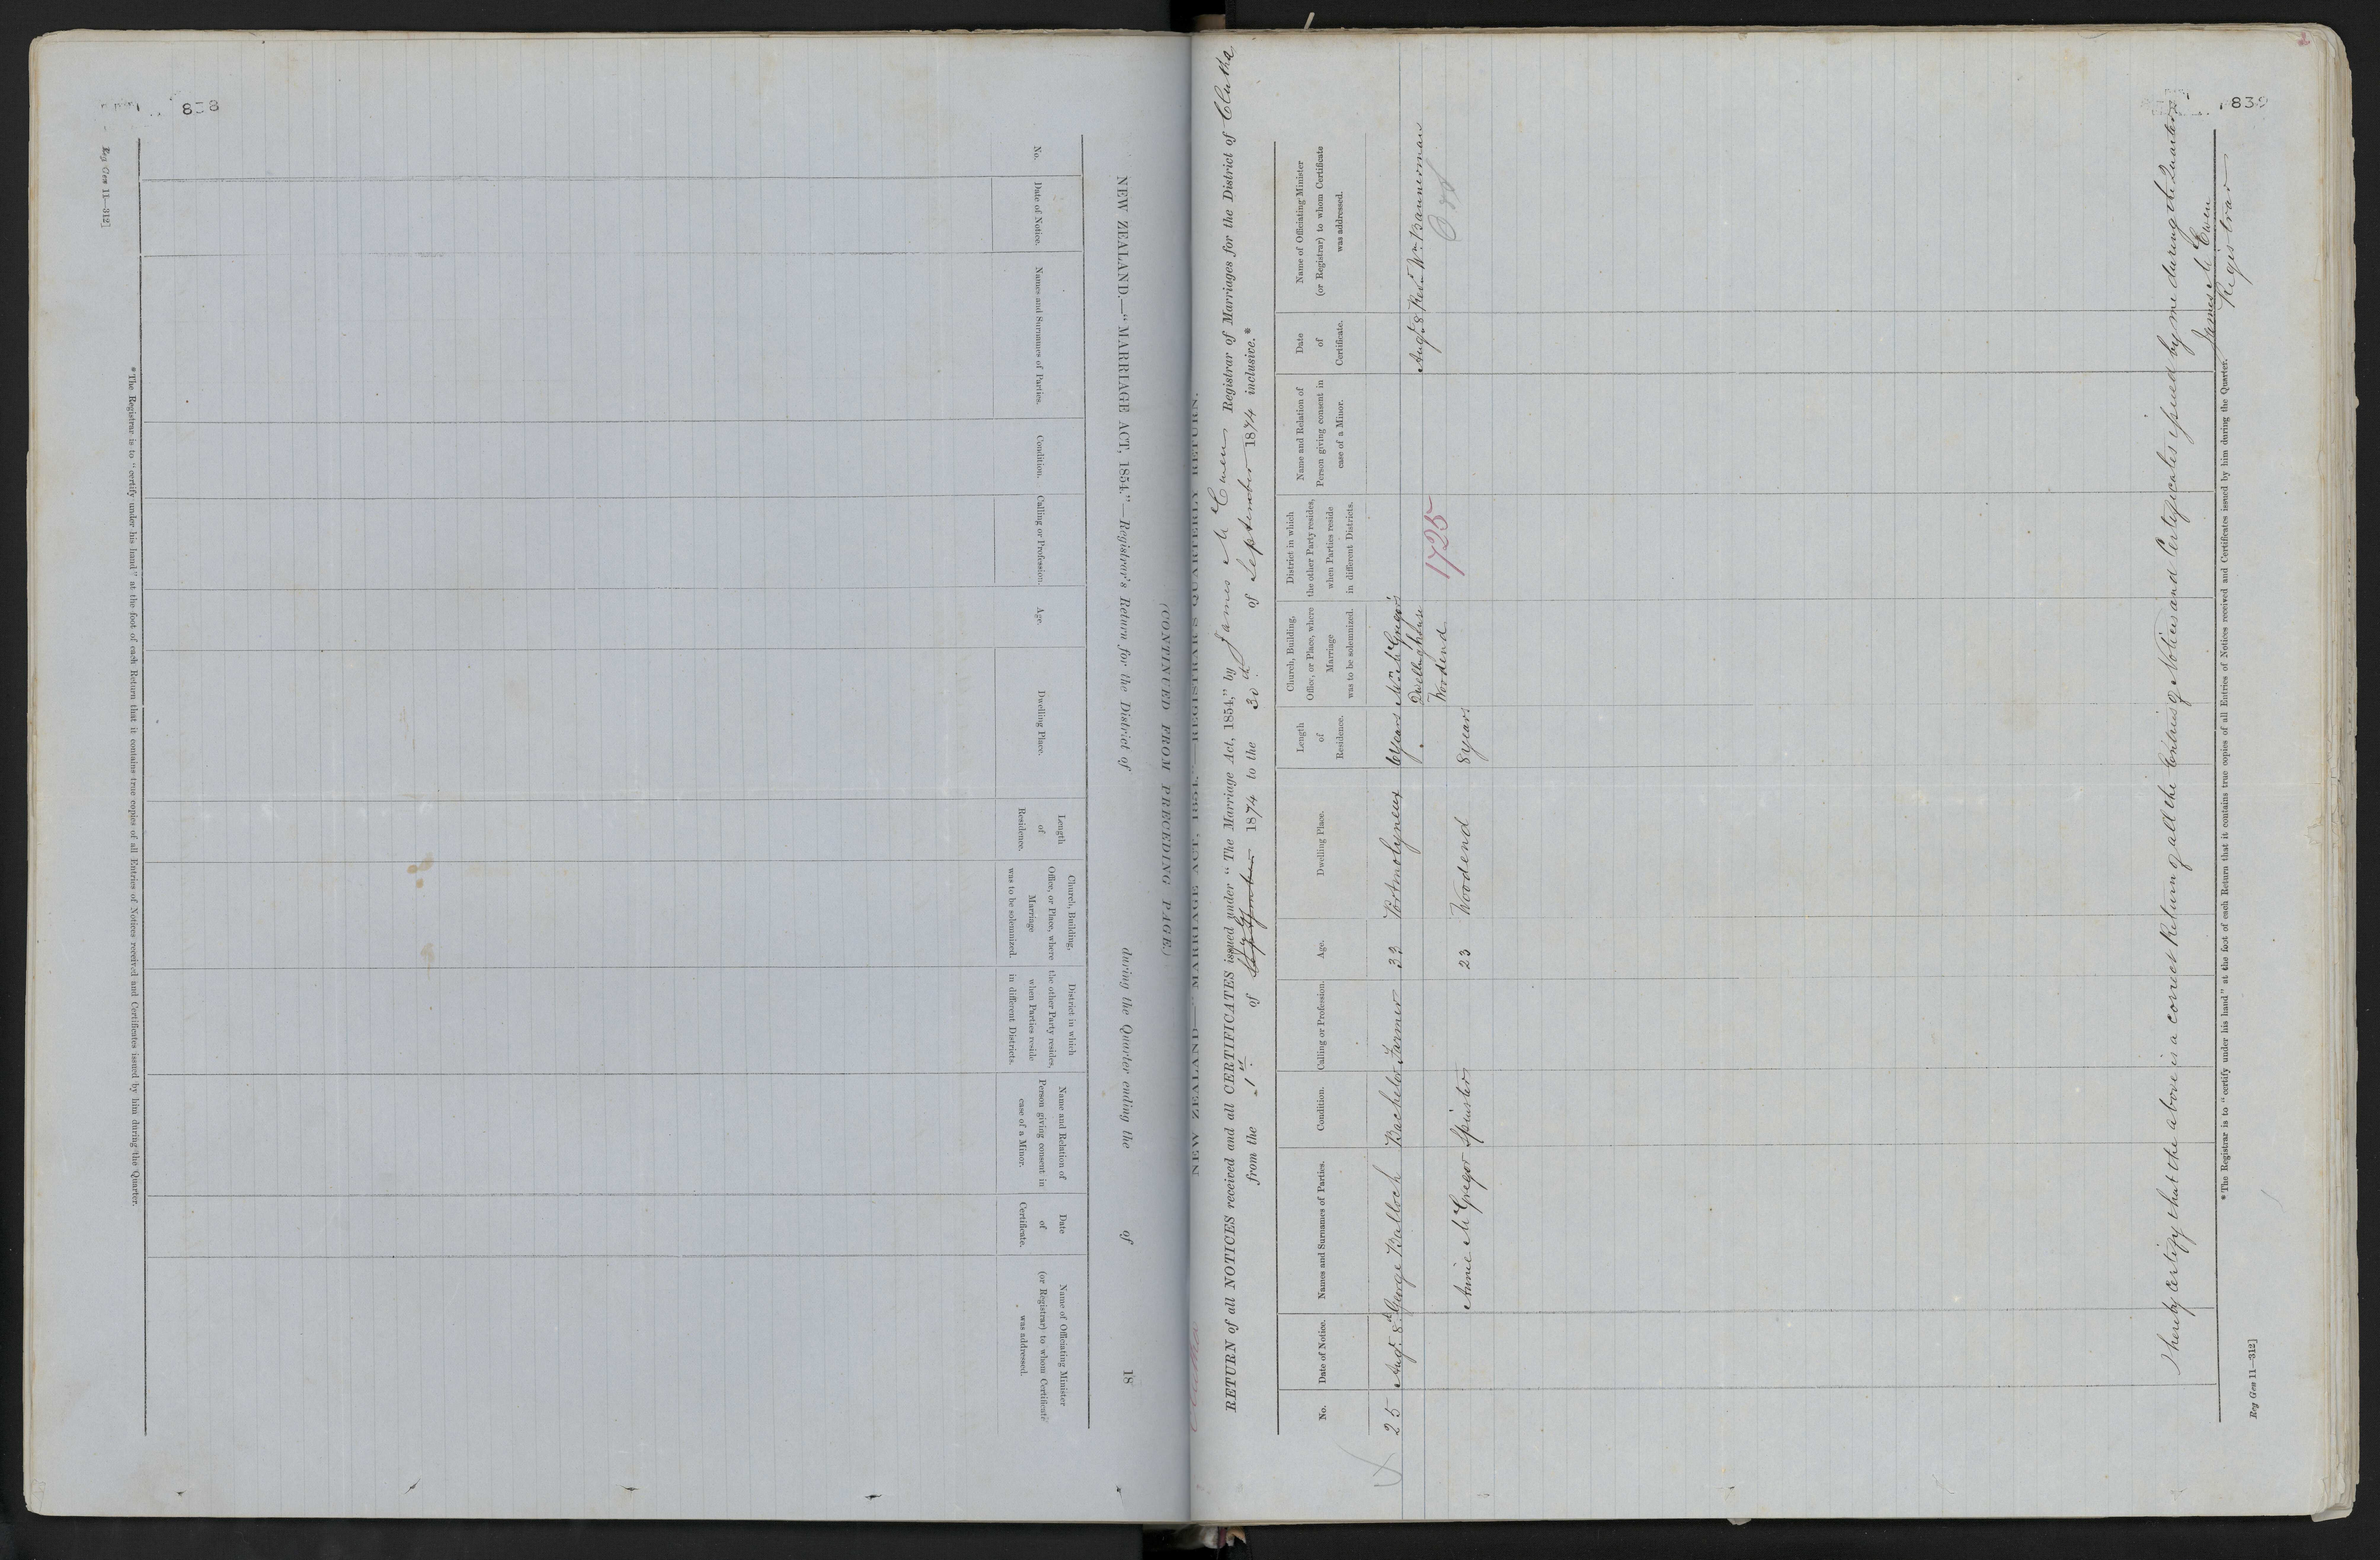 838
NEW ZEALAND.—"MARRIAGE ACT, 1854."—Registrar's Return for the District of during the Quarter ending the of 18
(CONTINUED FROM PRECEDING PAGE.)
No.
Date of Notice.
Names and Surnames of Parties.
Condition.
Calling or Profession.
Age.
Dwelling Place.
Length
of
Residence.
Church, Building,
Office, or Place, where
Marriage
was to be solemnized.
District in which
the other Party resides,
when Parties reside
in different Districts.
Name and Relation of
Person giving consent in
case of a Minor.
Date
of
Certificate.
Name of Officiating Minister
(or Registrar) to whom Certificate
was addressed.
* The Registrar is to "certify under his hand" at the foot of each Return that it contains true copies of all Entries of Notices received and Certificates issued by him during the Quarter.
Reg Gen 11—312]
839
NEW ZEALAND—"MARRIAGE ACT, 1854."—REGISTRAR'S QUARTERLY RETURN.
RETURN of all NOTICES received and all CERTIFICATES issued under "The Marriage Act, 1854," by James McEwen Registrar of Marriages for the District of Clutha
from the 1st of 1874 to the 30th of September 1874 inclusive.*
No.
Date of Notice.
Names and Surnames of Parties.
Condition.
Calling or Profession.
Age.
Dwelling Place.
Length
of
Residence.
Church, Building,
Office, or Place, where
Marriage
was to be solemnized.
District in which
the other Party resides,
when Parties reside
in different Districts.
Name and Relation of
Person giving consent in
case of a Minor.
Date
of
Certificate.
Name of Officiating Minister
(or Registrar) to whom Certificate
was addressed.
25 Augt. 8th George Balloch Bachelor Farmer 33 Portmolyneux 6 years Mr McGregor's
Dwelling house Augt. 8 Revd. Wm. Bannerman
Woodend 1725
Annie McGregor Spinster 23 Woodend 8 years
I hereby certify that the above is a correct Return of all the Entries of Notices and Certificates issued by me during the Quarter
James McEwen
Registrar
* The Registrar is to "certify under his hand" at the foot of each Return that it contains true copies of all Entries of Notices received and Certificates issued by him during the Quarter.
Reg Gen 11—312]